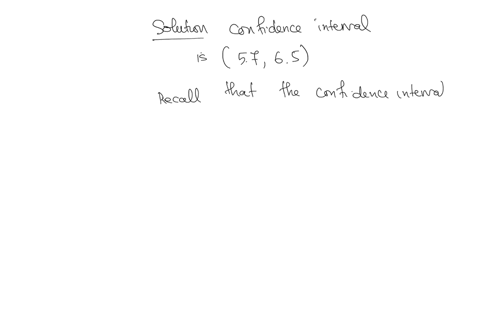 Solution confidence interval
is (5.7, 6.5)
Recall that the confidence interval